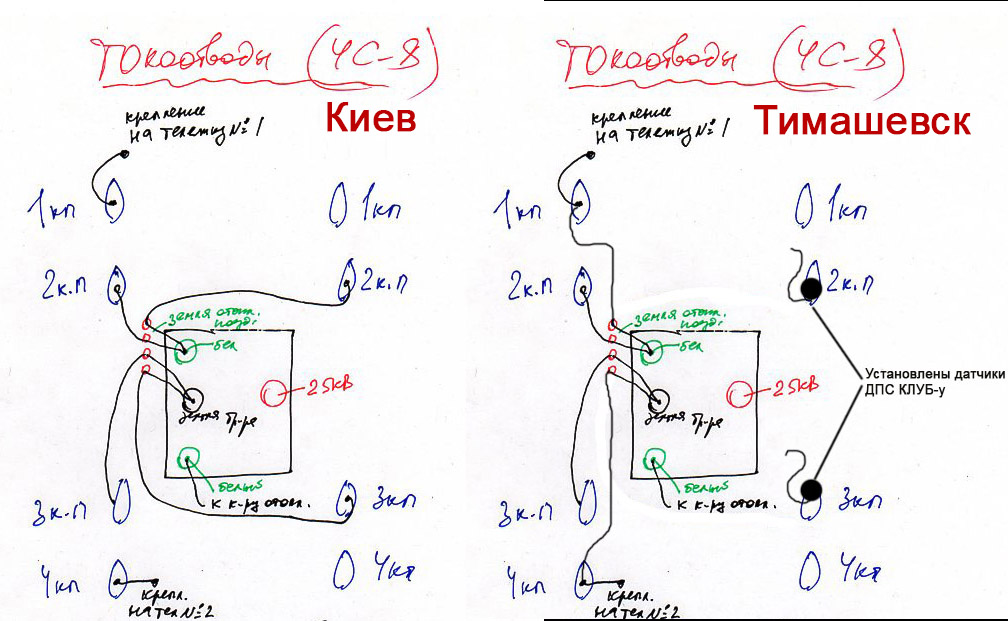 Токоотводы (ЧС-8)
Киев
крепление
на тележку №1
1кп
1кп
2к.п
2к.п
земля отоп.
поезд.
бел
25кВ
земля тр-ра
белый
к к-ру отоп.
3к.п
3кп
4кп
4кп
крепл.
на тел №2
Токоотводы (ЧС-8)
Тимашевск
крепление
на тележку №1
1кп
1кп
2к.п
2к.п
земля отоп.
поезд.
бел
25кВ
Установлены датчики
ДПС КЛУБ-у
земля тр-ра
белый
к к-ру отоп.
3к.п
3кп
4кп
4кп
крепл.
на тел №2